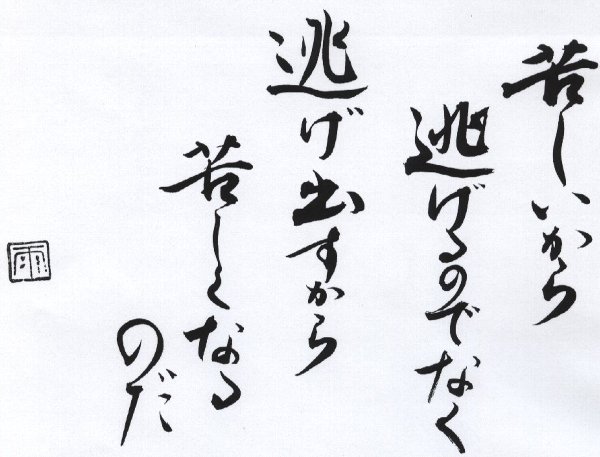 苦しいから
逃げるのでなく
逃げ出すから
苦しくなる
のだ
雨